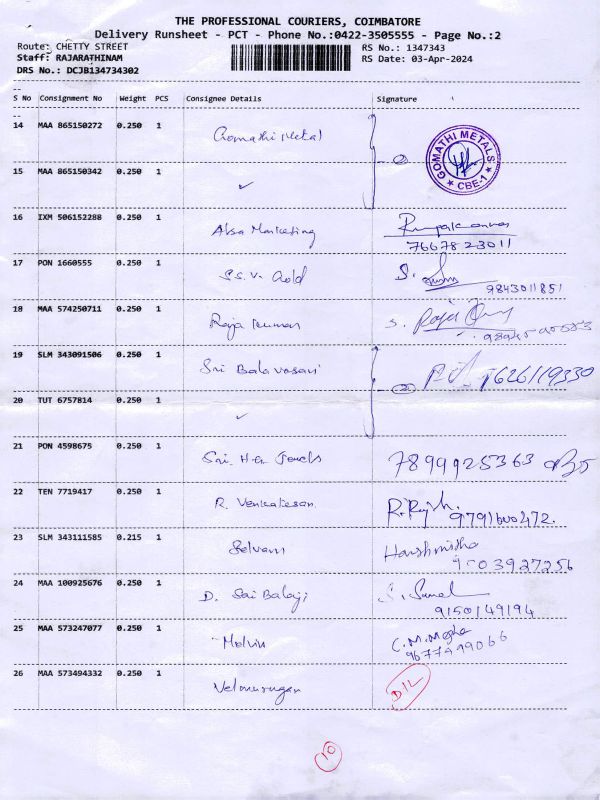 THE PROFESSIONAL COURIERS, COIMBATORE
Delivery Runsheet - PCT - Phone No.:0422-3505555 - Page No.:2
Route: CHETTY STREET RS No.: 1347343
Staff: RAJARATHINAM RS Date: 03-Apr-2024
DRS No.: DCJB134734302
S No Consignment No Weight PCS Consignee Details Signature
14 MAA 865150272 0.250 1 Gomathi Metal
② GOMATHI METALS ★ CBE-1 ★
15 MAA 865150342 0.250 1 ✓
16 IXM 506152288 0.250 1 Aksa Marketing
76678 23011
17 PON 1660555 0.250 1 S.S.V. Gold S.
9843011851
18 MAA 574250711 0.250 1 Raja Kumar S. Raja
19 SLM 343091506 0.250 1 Sri Balavasavi
② 7626119330
20 TUT 6757814 0.250 1 ✓
21 PON 4598675 0.250 1 Sri. Jewels 7899925363
22 TEN 7719417 0.250 1 R. Venkatesan
9791600472.
23 SLM 343111585 0.215 1 Selvam Harshmitha
9003927256
24 MAA 100925676 0.250 1 D. Sai Balaji
9150149194
25 MAA 573247077 0.250 1 Melvin C.M.
9677499066
26 MAA 573494332 0.250 1 Velmurugan D/L
10